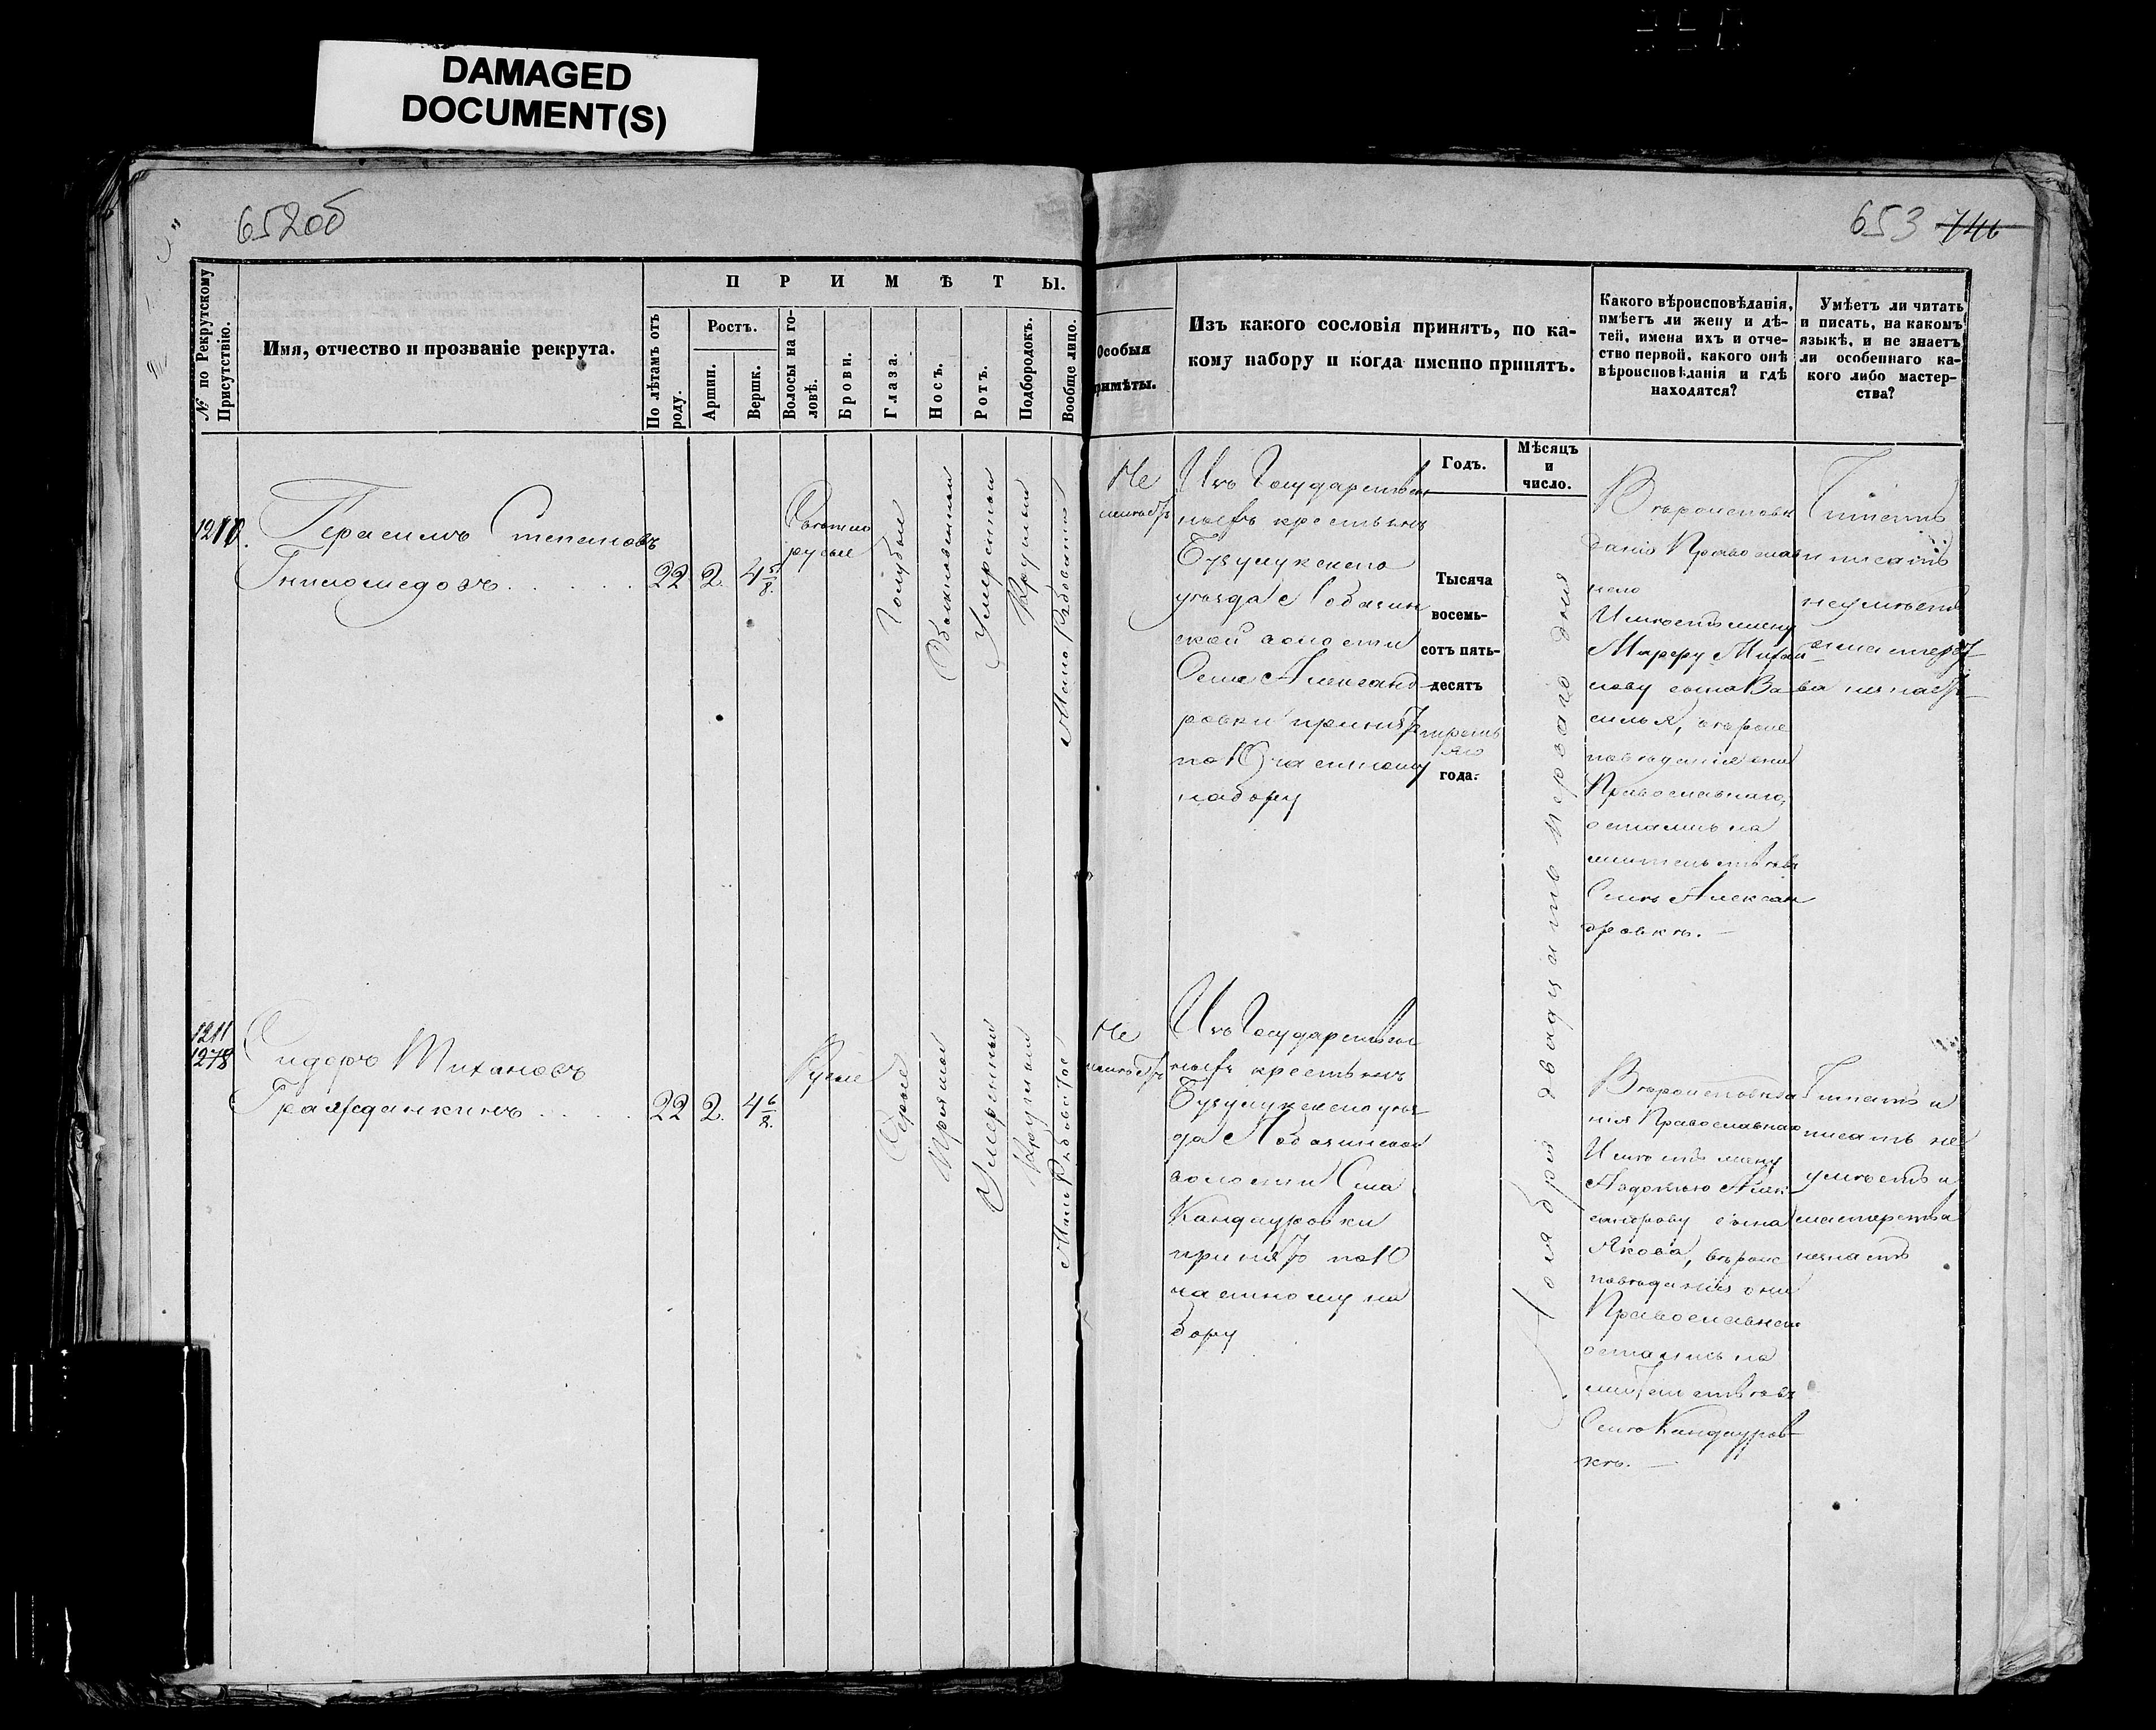 DAMAGED
DOCUMENT(S)
652об
653 746
№ по Рекрутскому
Присутствію.
Имя, отчество и прозваніе рекрута.
ПРИМѢТЫ.
По лѣтамъ отъ
роду.
Ростъ.
Аршин.
Вершк.
Волосы на го-
ловѣ.
Брови.
Глаза.
Носъ.
Ротъ.
Подбородокъ.
Вообще лицо.
Особыя
примѣты.
Изъ какого сословія принятъ, по ка-
кому набору и когда именно принятъ.
Какого вѣроисповѣданія,
имѣетъ ли жену и дѣ-
тей, имена ихъ и отче-
ство первой, какого онѣ
вѣроисповѣданія и гдѣ
находятся?
Умѣетъ ли читать
и писать, на какомъ
языкѣ, и не знаетъ
ли особеннаго ка-
кого либо мастер-
ства?
Годъ.
Мѣсяцъ
и
число.
1210.
Герасимъ Степановъ
Гниломедовъ
22
2.
4 5/8.
Свѣтло
русые
Голубые
Обыкновенный
Умѣренный
Круглый
Мало Рябоватое
Не
имѣетъ
Изъ Государствен
ныхъ крестьянъ
Бузулукскаго
уѣзда Лобазин
ской волости
Села Александ
ровки принятъ
по 10 частному
набору
Тысяча
восемь-
сотъ пять-
десятъ
треть
яго
года.
Ноября двадцать перваго дня
Вѣроисповѣ
данія Православ
наго
Имѣетъ жену
Марфу Михай
лову сына Ва
силья, вѣроис
повѣданія они
Православнаго,
остались на
жительствѣ въ
Селѣ Алексан
дровкѣ.
Читать
и писать
неумѣетъ
и мастерст
ва незнаетъ
1211
1278
Сидоръ Тихановъ
Гражданкинъ
22
2.
4 6/8.
Русые
Сѣрые
Прямой
Умѣренный
Круглый
Мало Рябоватое
Не
имѣетъ
Изъ Государствен
ныхъ крестьянъ
Бузулукскаго уѣз
да Лобазинской
волости Села
Кандауровки
принятъ по 10
частному на
бору
Вѣроисповѣда
нія Православнаго
Имѣетъ жену
Авдотью Алек
сандрову сына
Якова, вѣроис
повѣданія они
Православнаго
остались на
жительствѣ въ
Селѣ Кандауров
кѣ.
Читать и
писать не
умѣетъ и
мастерства
незнаетъ